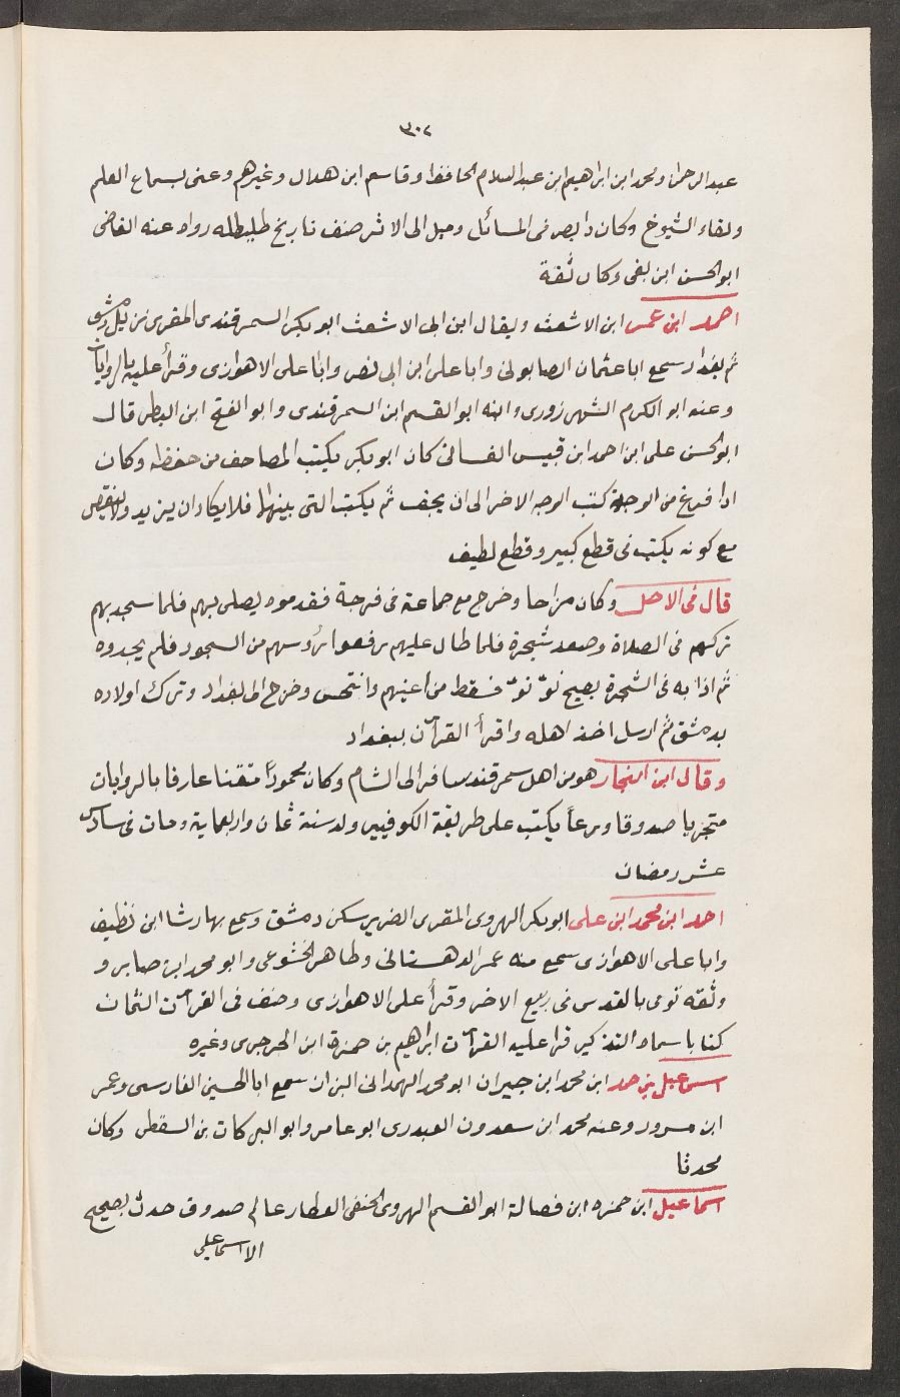 ٣٠٢
عبد الرحمن ومحمد ابن ابراهيم ابن عبد السلام الحافظ وقاسم ابن هدال وغيرهم وعنى بسماع العلم
ولقاء الشيوخ وكان ذا بصر فى المسائل وميل الى الاثر صنف تاريخ طليطله رواه عنه القاضى
ابو الحسن ابن بقى وكان ثقة
احمد ابن عمر ابن الاشعث ويقال ابن ابى الاشعث ابو بكر السمرقندى المقرى نزيل دمشق
ثم بغداد سمع ابا عثمان الصابونى وابا على ابن ابى نصر وابا على الاهوازى وقرأ عليه بالروايات
وعنه ابو الكرم الشهرزورى وابنه ابو القسم ابن السمرقندى وابو الفتح ابن البطى قال
ابو الحسن على ابن احمد ابن قبيس الغسانى كان ابو بكر يكتب المصاحف من حفظه وكان
اذا فرغ من الوجه كتب الوجه الاخر الى ان يجف ثم يكتب التى بينهما فلا يكاد ان يزيد ولا ينقص
مع كونه يكتب فى قطع كبير وقطع لطيف
قال فى الاصل وكان مزاحا وخرج مع جماعة فى فرجة فقدموه يصلى بهم فلما سجد بهم
تركهم فى الصلاة وصعد شجرة فلما طال عليهم رفعوا رؤسهم من السجود فلم يجدوه
ثم اذا به فى الشجرة يصيح نوّ نوّ فسقط من اعينهم وانتحس وخرج الى بغداد وترك اولاده
بدمشق ثم ارسل اخذ اهله واقرأ القرآن ببغداد
وقال ابن النجار هو من اهل سمرقند سافر الى الشام وكان مجودًا متقنا عارفا بالروايات
متحريا صدوقا ورعاً يكتب على طريقة الكوفيين ولد سنة ثمان واربعماية ومات فى سادس
عشر رمضان
احمد ابن محمد ابن على ابو بكر الهروى المقرى الضرير سكن دمشق وسمع بها رشا ابن نظيف
وابا على الاهوازى سمع منه عمر الدهستانى وطاهر الخشوعى وابو محمد ابن صابر و
وثقه توفى بالقدس فى ربيع الاخر وقرأ على الاهوازى وصنف فى القرآت الثمان
كتابا سماه التذكير قرا عليه القرآت ابراهيم بن حمزة ابن الجرجرى وغيره
اسماعيل بن حمد ابن محمد ابن جيران ابو محمد الهمدانى البزان سمع ابا الحسين الفارسى وعمر
ابن مسرور وعنه محمد ابن سعدون العبدرى ابو عامر وابو البركات بن السقطى وكان
محدثا
اسماعيل ابن حمزه ابن فضالة ابو القسم الهروى الحنفى العطار عالم صدوق حدث بصحيح
الاسماعيلى